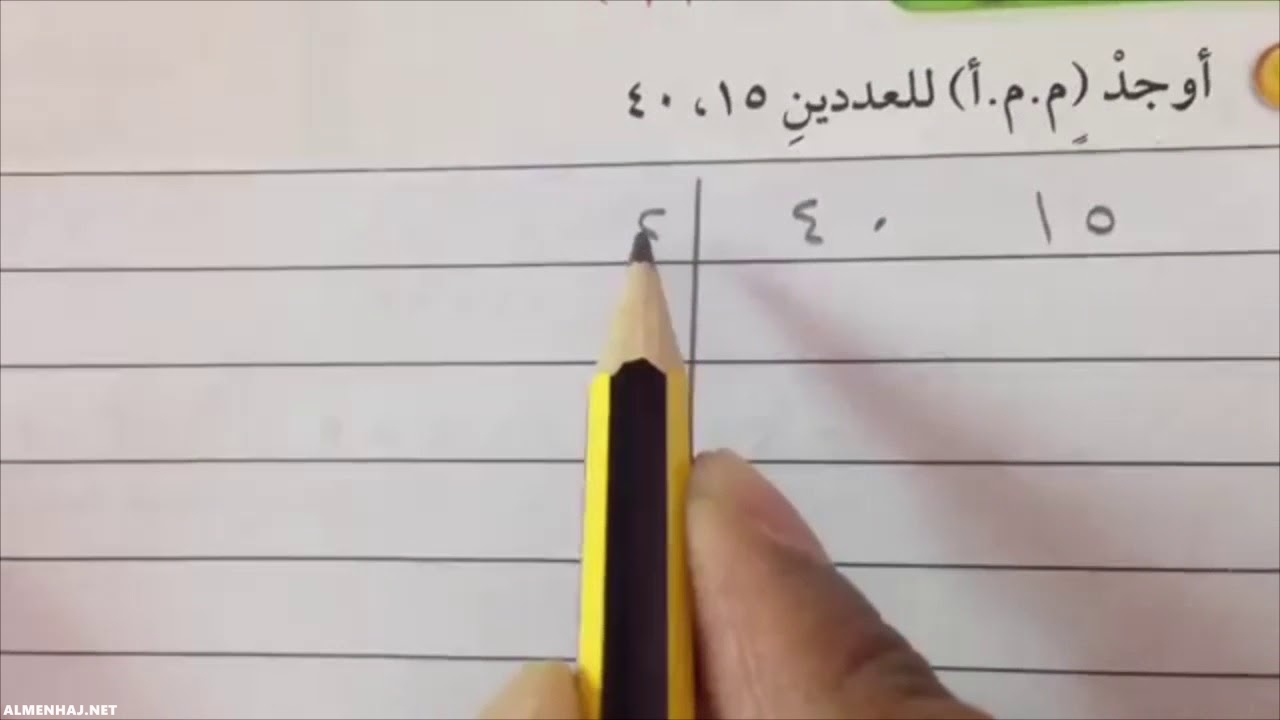 أوجدْ (م.م.أ) للعددينِ ١٥، ٤٠
١٥ ٤٠ ٢
ALMENHAJ.NET